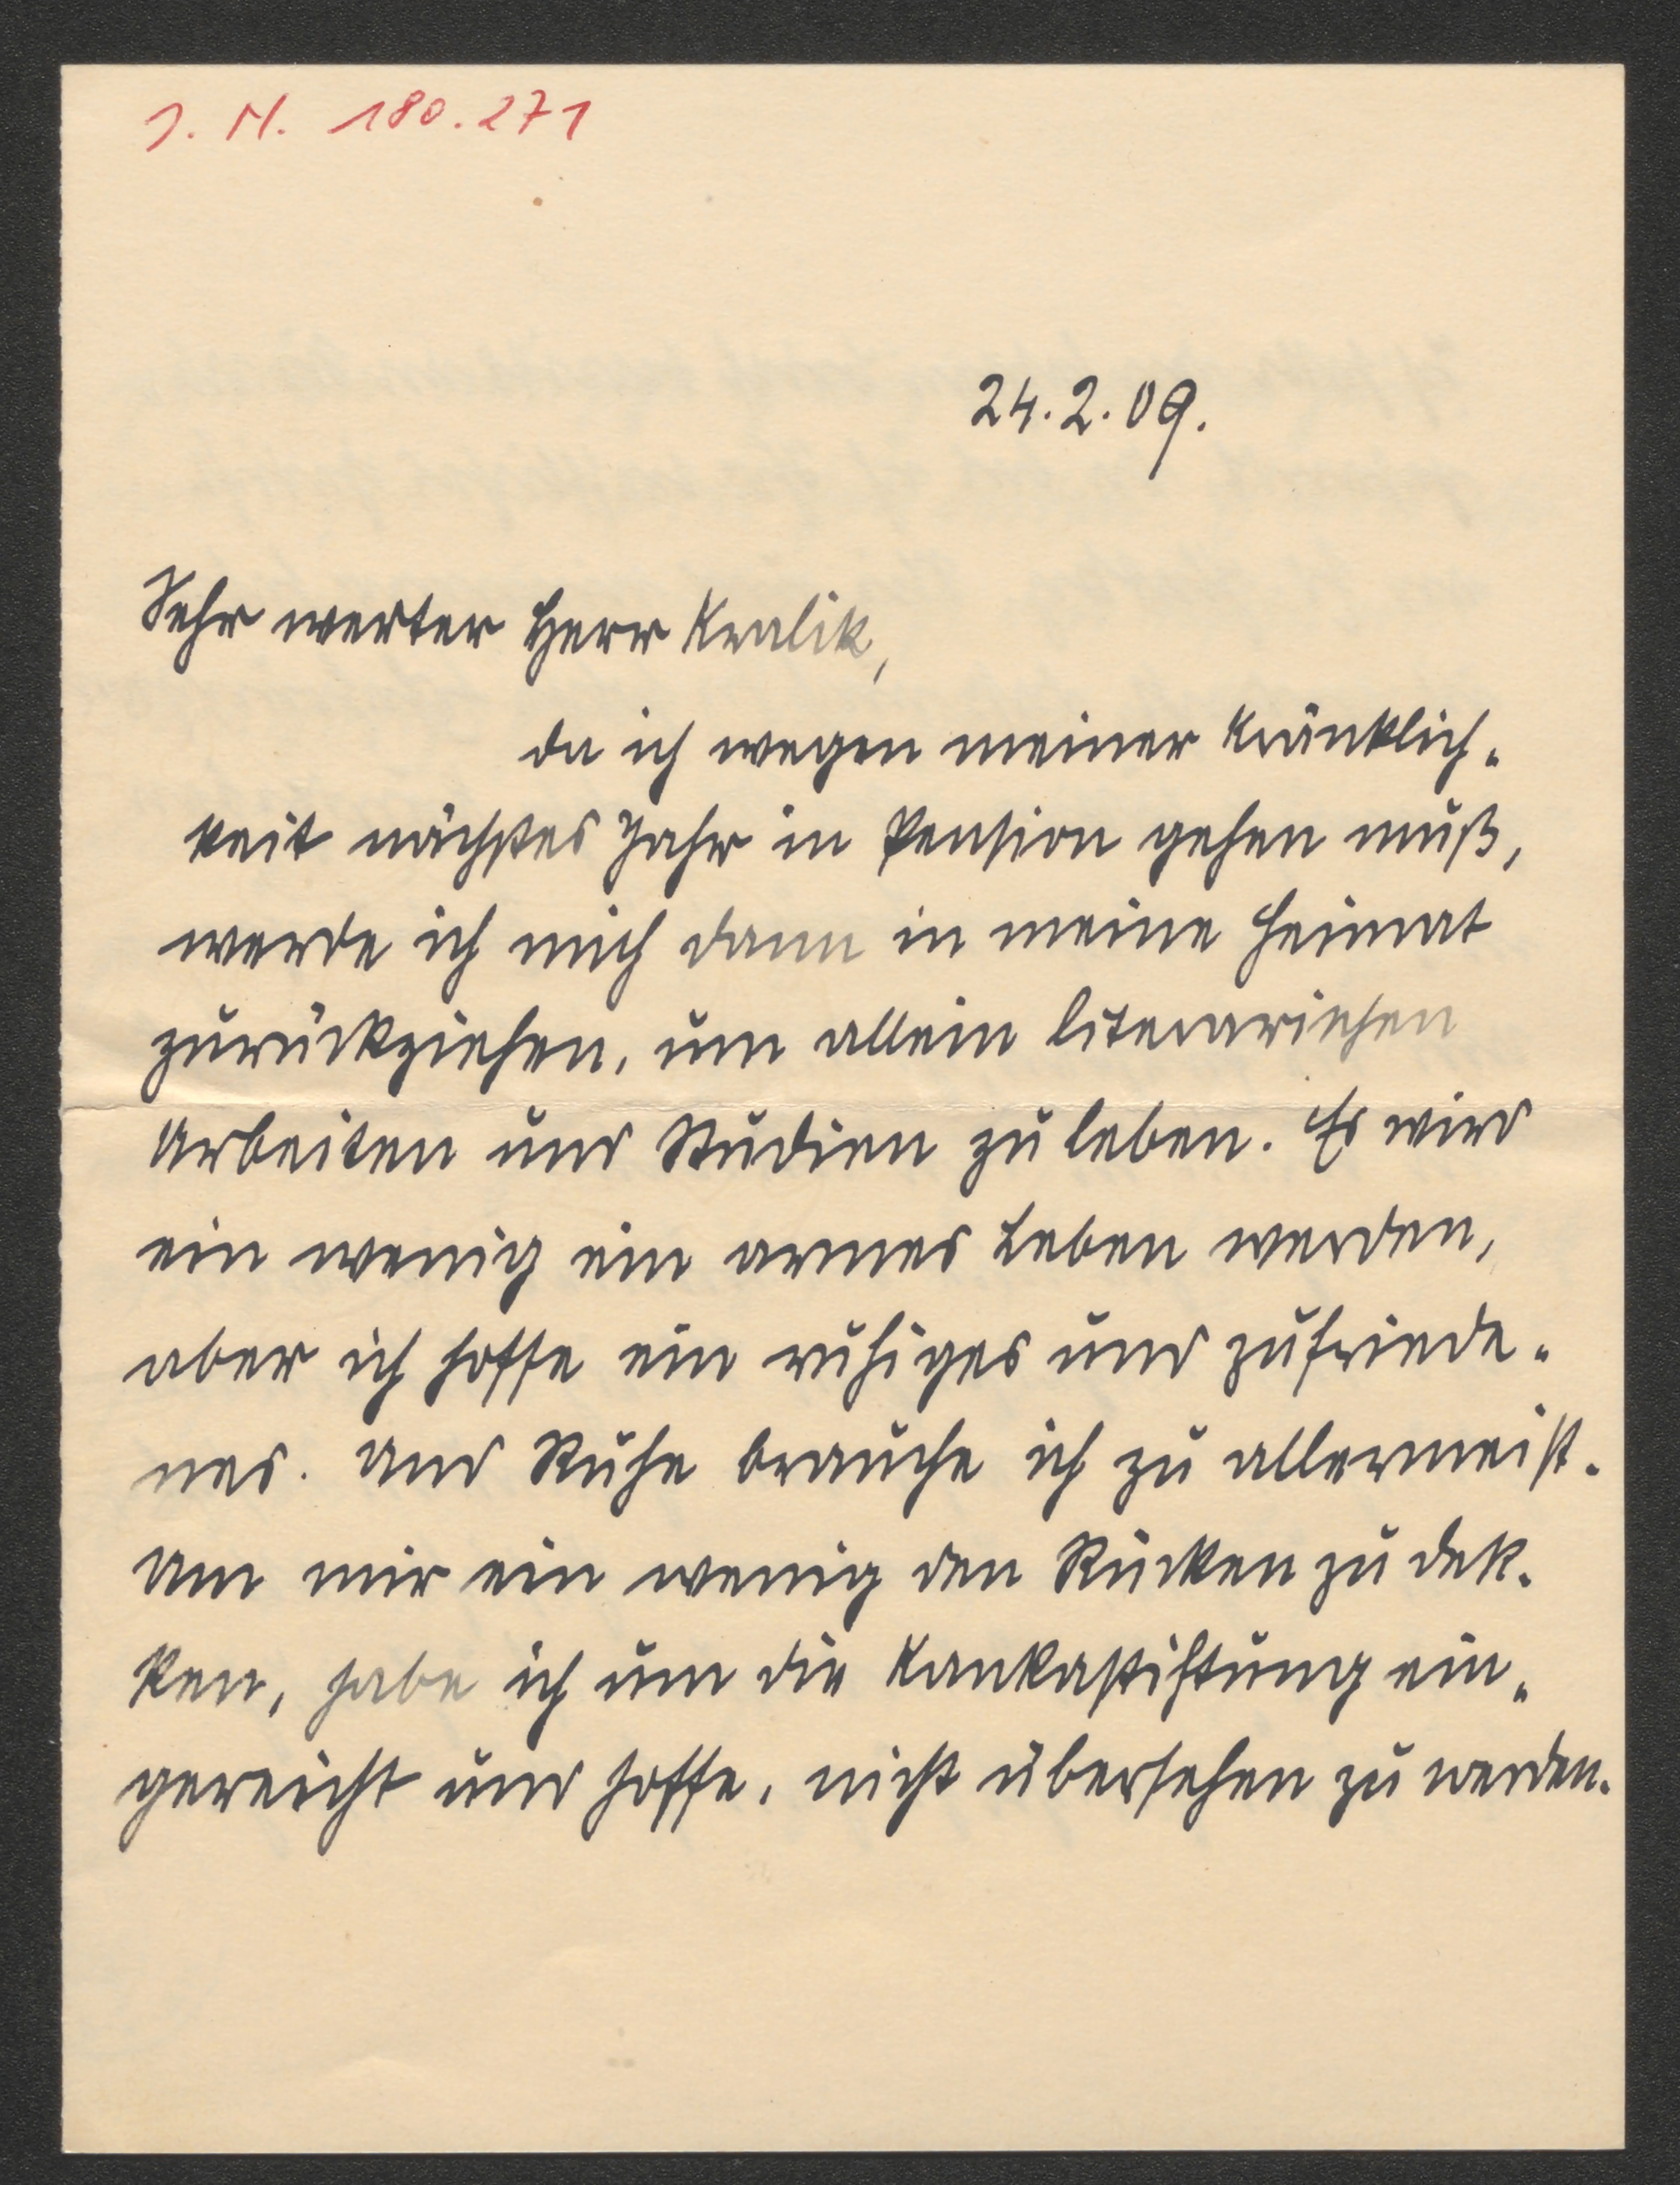 J. N. 180.271
24.2.09.
Sehr werter Herr Kralik,
da ich wegen meiner Kränklich-
keit nächstes Jahr in Pension gehen muß,
werde ich mich dann in meine Heimat
zurückziehen, um allein literarischen
Arbeiten und Studien zu leben. Es wird
ein wenig ein armes Leben werden,
aber ich hoffe ein ruhiges und zufriede-
nes. Und Ruhe brauche ich zu allermeist.
Um mir ein wenig den Rücken zu dek-
ken, habe ich um die Kankastiftung ein-
gereicht und hoffe, nicht übersehen zu werden.